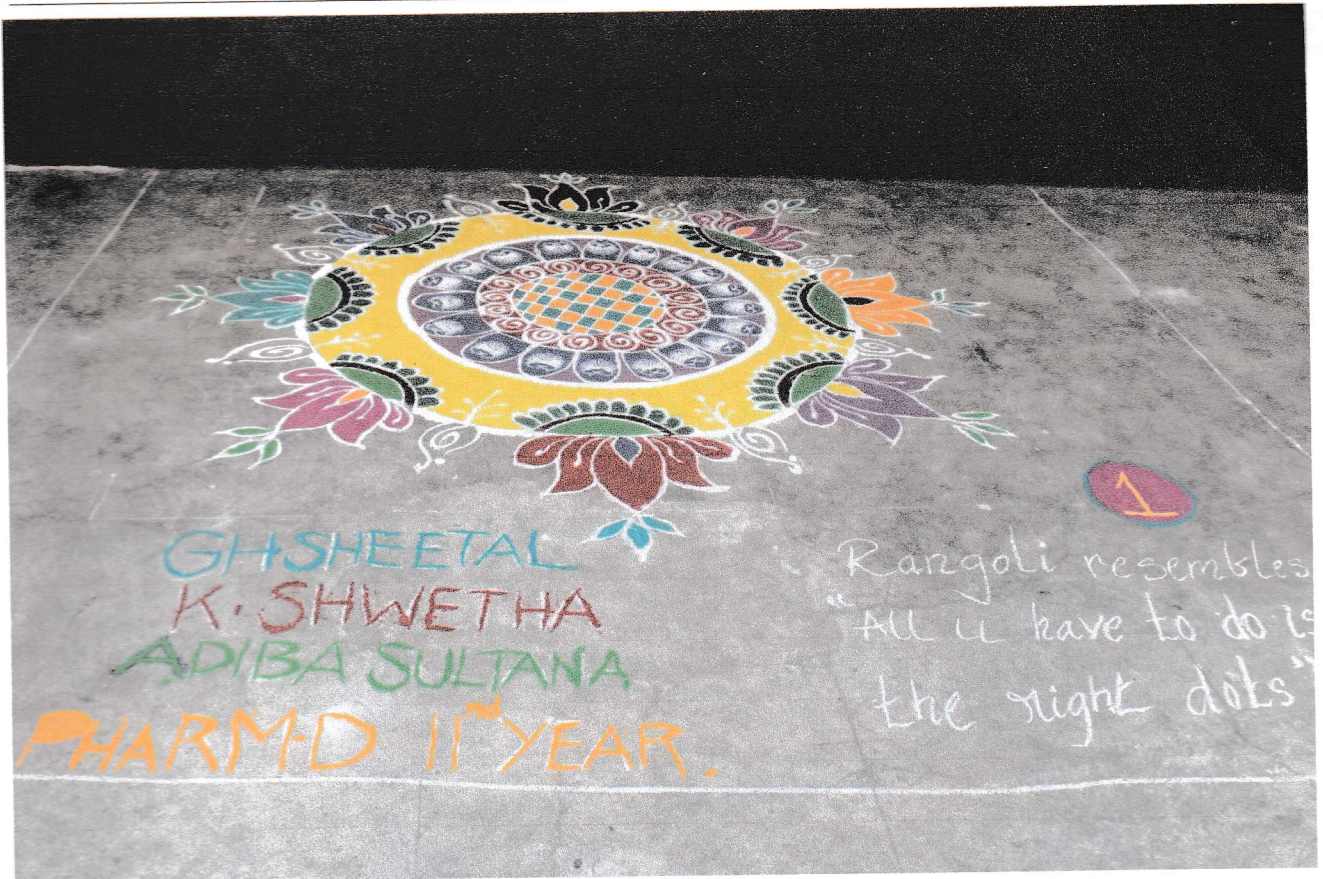 GHSHEETAL
K. SHWETHA
ADIBA SULTANA
PHARM-D IInd YEAR.
1
Rangoli resembles
"All u have to do is
the right dots"